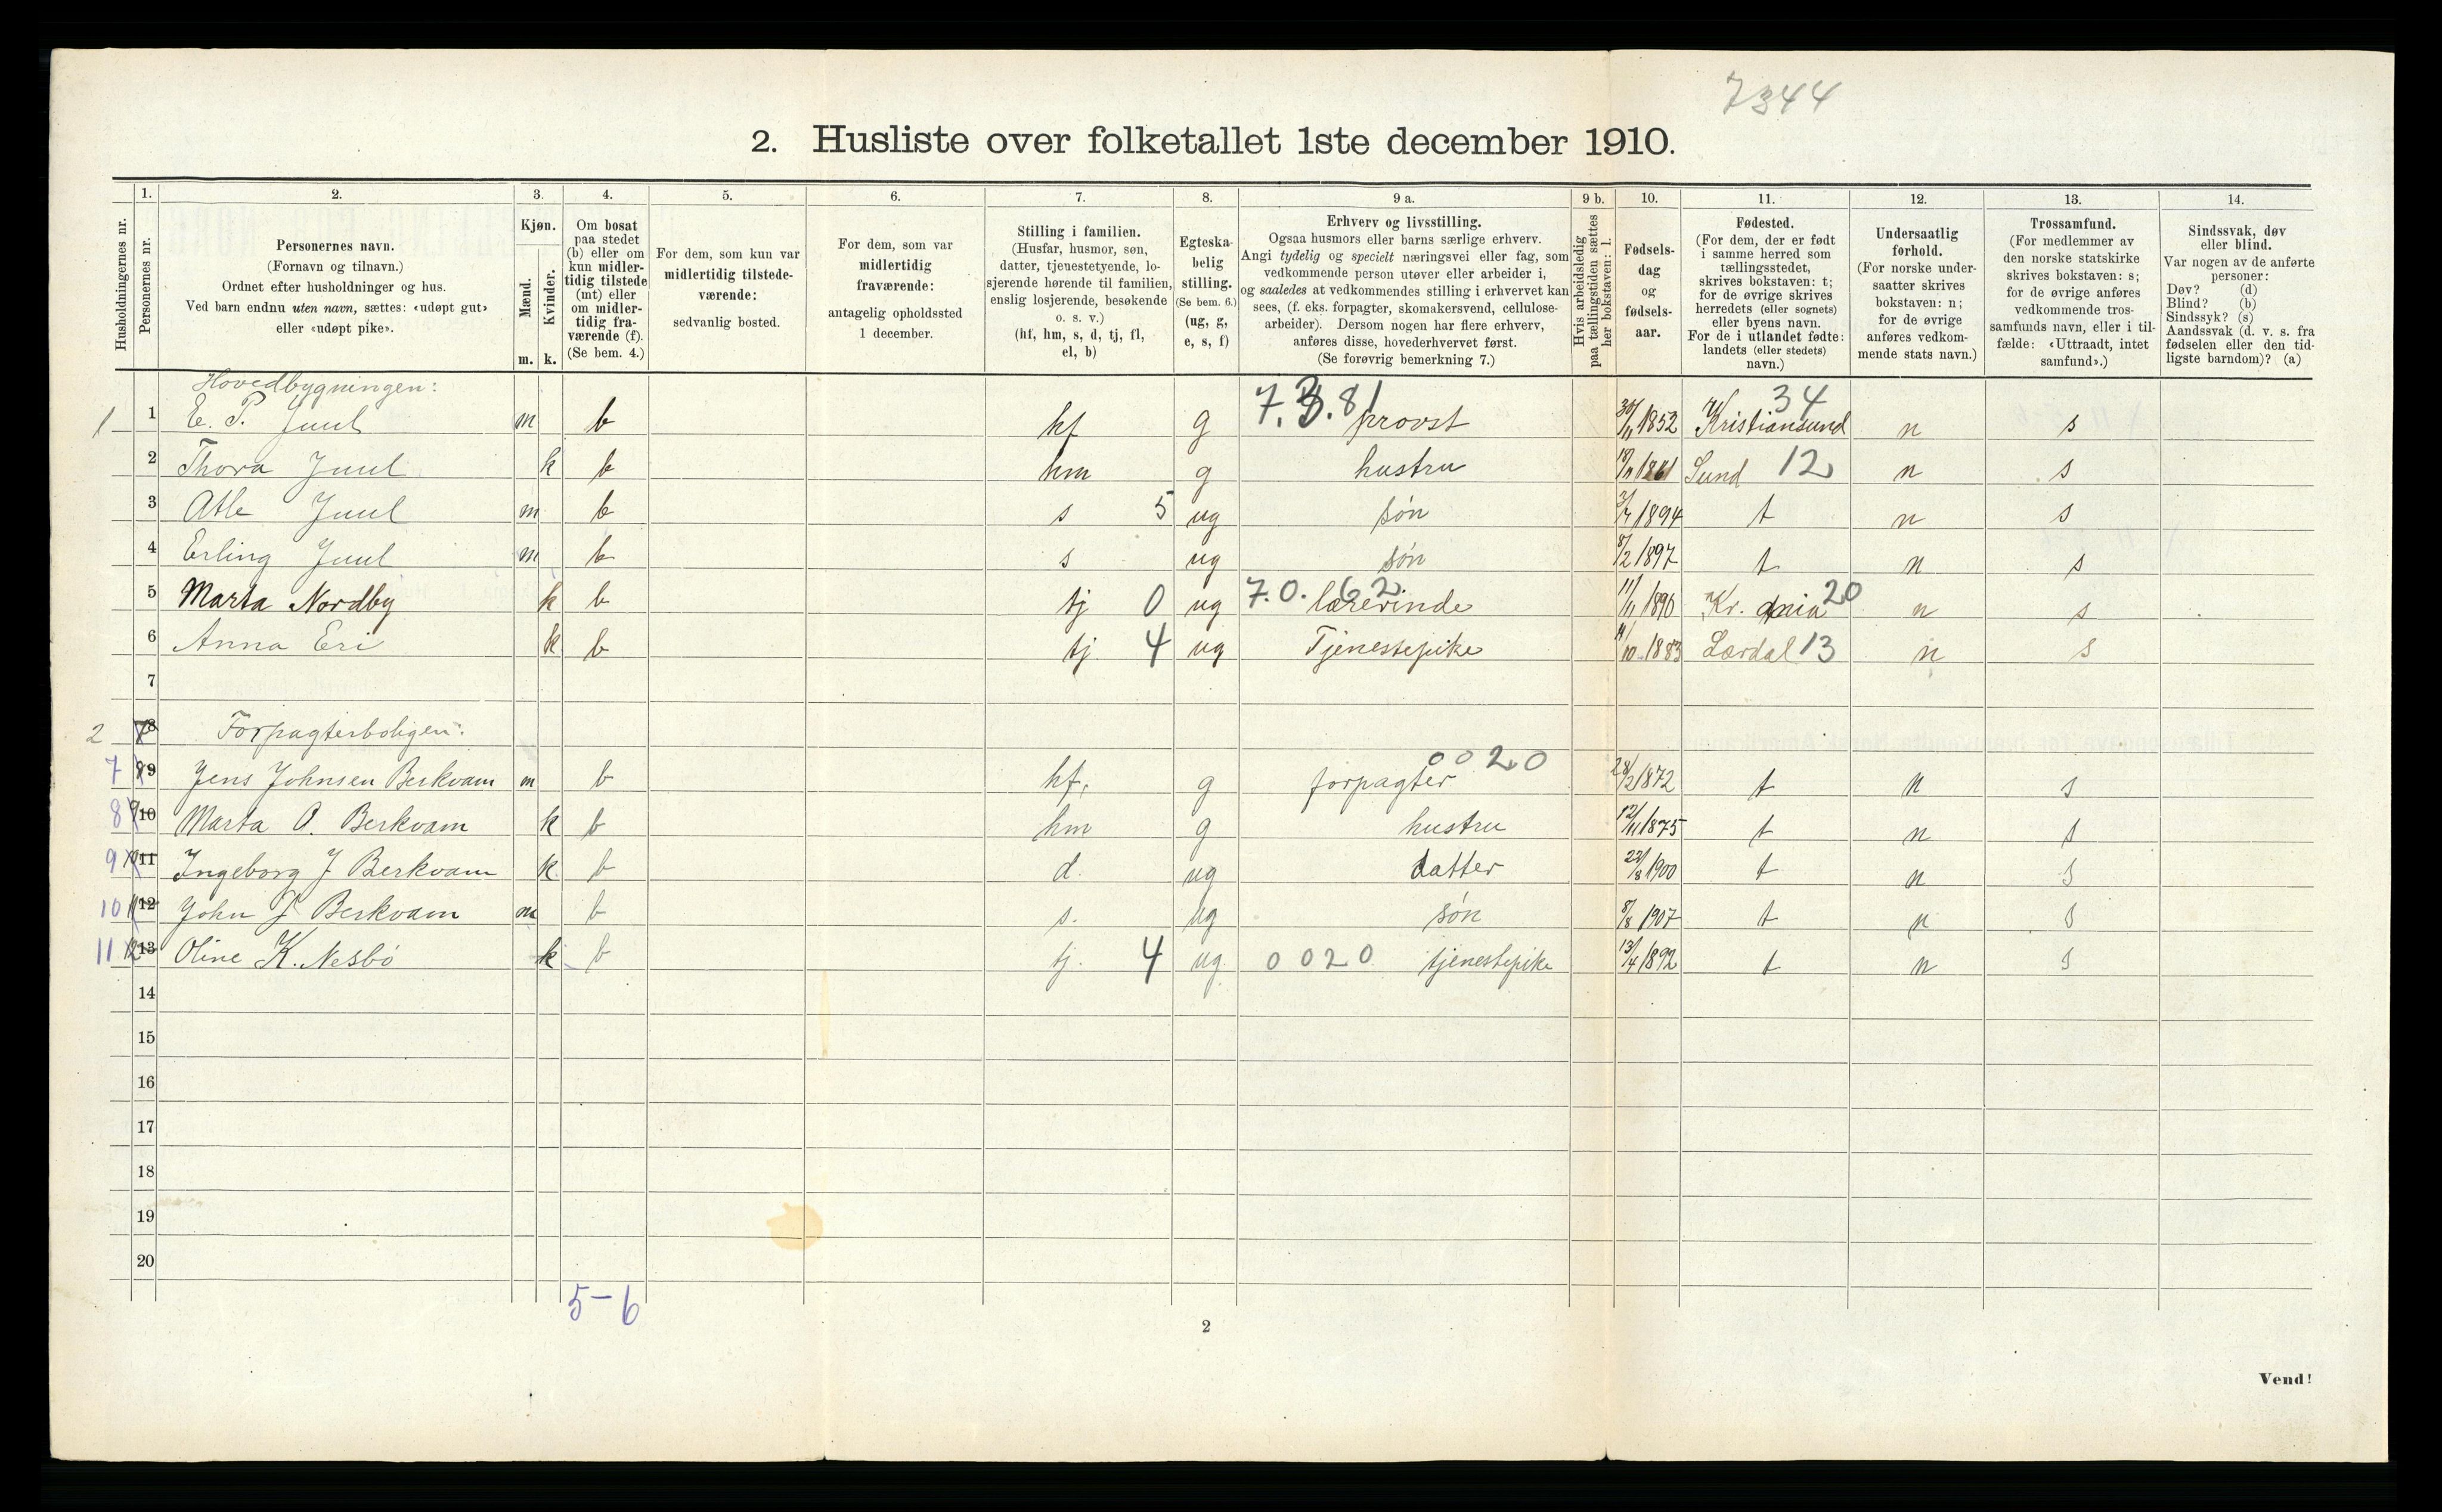 7344
2. Husliste over folketallet 1ste december 1910.
1. 2. 3. 4. 5. 6. 7. 8. 9 a. 9 b. 10. 11. 12. 13. 14.
Husholdningernes nr.
Personernes nr.
Personernes navn.
(Fornavn og tilnavn.)
Ordnet efter husholdninger og hus.
Ved barn endnu uten navn, sættes: «udøpt gut»
eller «udøpt pike».
Kjøn.
Mænd.
Kvinder.
m. k.
Om bosat
paa stedet
(b) eller om
kun midler-
tidig tilstede
(mt) eller
om midler-
tidig fra-
værende (f).
(Se bem. 4.)
For dem, som kun var
midlertidig tilstede-
værende:
sedvanlig bosted.
For dem, som var
midlertidig
fraværende:
antagelig opholdssted
1 december.
Stilling i familien.
(Husfar, husmor, søn,
datter, tjenestetyende, lo-
sjerende hørende til familien,
enslig losjerende, besøkende
o. s. v.)
(hf, hm, s, d, tj, fl,
el, b)
Egteska-
belig
stilling.
(Se bem. 6.)
(ug, g,
e, s, f)
Erhverv og livsstilling.
Ogsaa husmors eller barns særlige erhverv.
Angi tydelig og specielt næringsvei eller fag, som
vedkommende person utøver eller arbeider i,
og saaledes at vedkommendes stilling i erhvervet kan
sees, (f. eks. forpagter, skomakersvend, cellulose-
arbeider). Dersom nogen har flere erhverv,
anføres disse, hovederhvervet først.
(Se forøvrig bemerkning 7.)
Hvis arbeidsledig
paa tællingstiden sættes
her bokstaven: l.
Fødsels-
dag
og
fødsels-
aar.
Fødested.
(For dem, der er født
i samme herred som
tællingsstedet,
skrives bokstaven: t;
for de øvrige skrives
herredets (eller sognets)
eller byens navn.
For de i utlandet fødte:
landets (eller stedets)
navn.)
Undersaatlig
forhold.
(For norske under-
saatter skrives
bokstaven: n;
for de øvrige
anføres vedkom-
mende stats navn.)
Trossamfund.
(For medlemmer av
den norske statskirke
skrives bokstaven: s;
for de øvrige anføres
vedkommende tros-
samfunds navn, eller i til-
fælde: «Uttraadt, intet
samfund».)
Sindssvak, døv
eller blind.
Var nogen av de anførte
personer:
Døv? (d)
Blind? (b)
Sindssyk? (s)
Aandssvak (d. v. s. fra
fødselen eller den tid-
ligste barndom)? (a)
Hovedbygningen:
1 1 E. P. Juul m b hf g 7. 3. 81 provst 30/11 1852 Kristiansund 34 n s
2 Thora Juul k b hm g hustru 1861 Sund 12 n s
3 Atle Juul m b s 5 ug søn 3/7 1894 t n s
4 Erling Juul m b s ug søn 8/2 1897 t n s
5 Marta Nordby k b tj 0 ug 7.0. 62 lærerinde 11/11 1890 Kr. ania 20 n s
6 Anna Eri k b tj 4 ug Tjenestepike 11/10 1883 Lærdal 13 n s
7
2 8 Forpagterboligen:
7 9 Jens Johnsen Berkvam m b hf. g forpagter 0020 28/2 1872 t n s
8 10 Marta O. Berkvam k b hm g hustru 12/11 1875 t n s
9 11 Ingeborg J Berkvam k b d. ug datter 22/8 1900 t n s
10 12 John J Berkvam m b s. ug søn 8/8 1907 t n s
11 13 Oline K. Nesbö k b tj. 4 ug 0020 tjenestepike 13/4 1892 t n s
14
15
16
17
18
19
20
5-6
2
Vend!